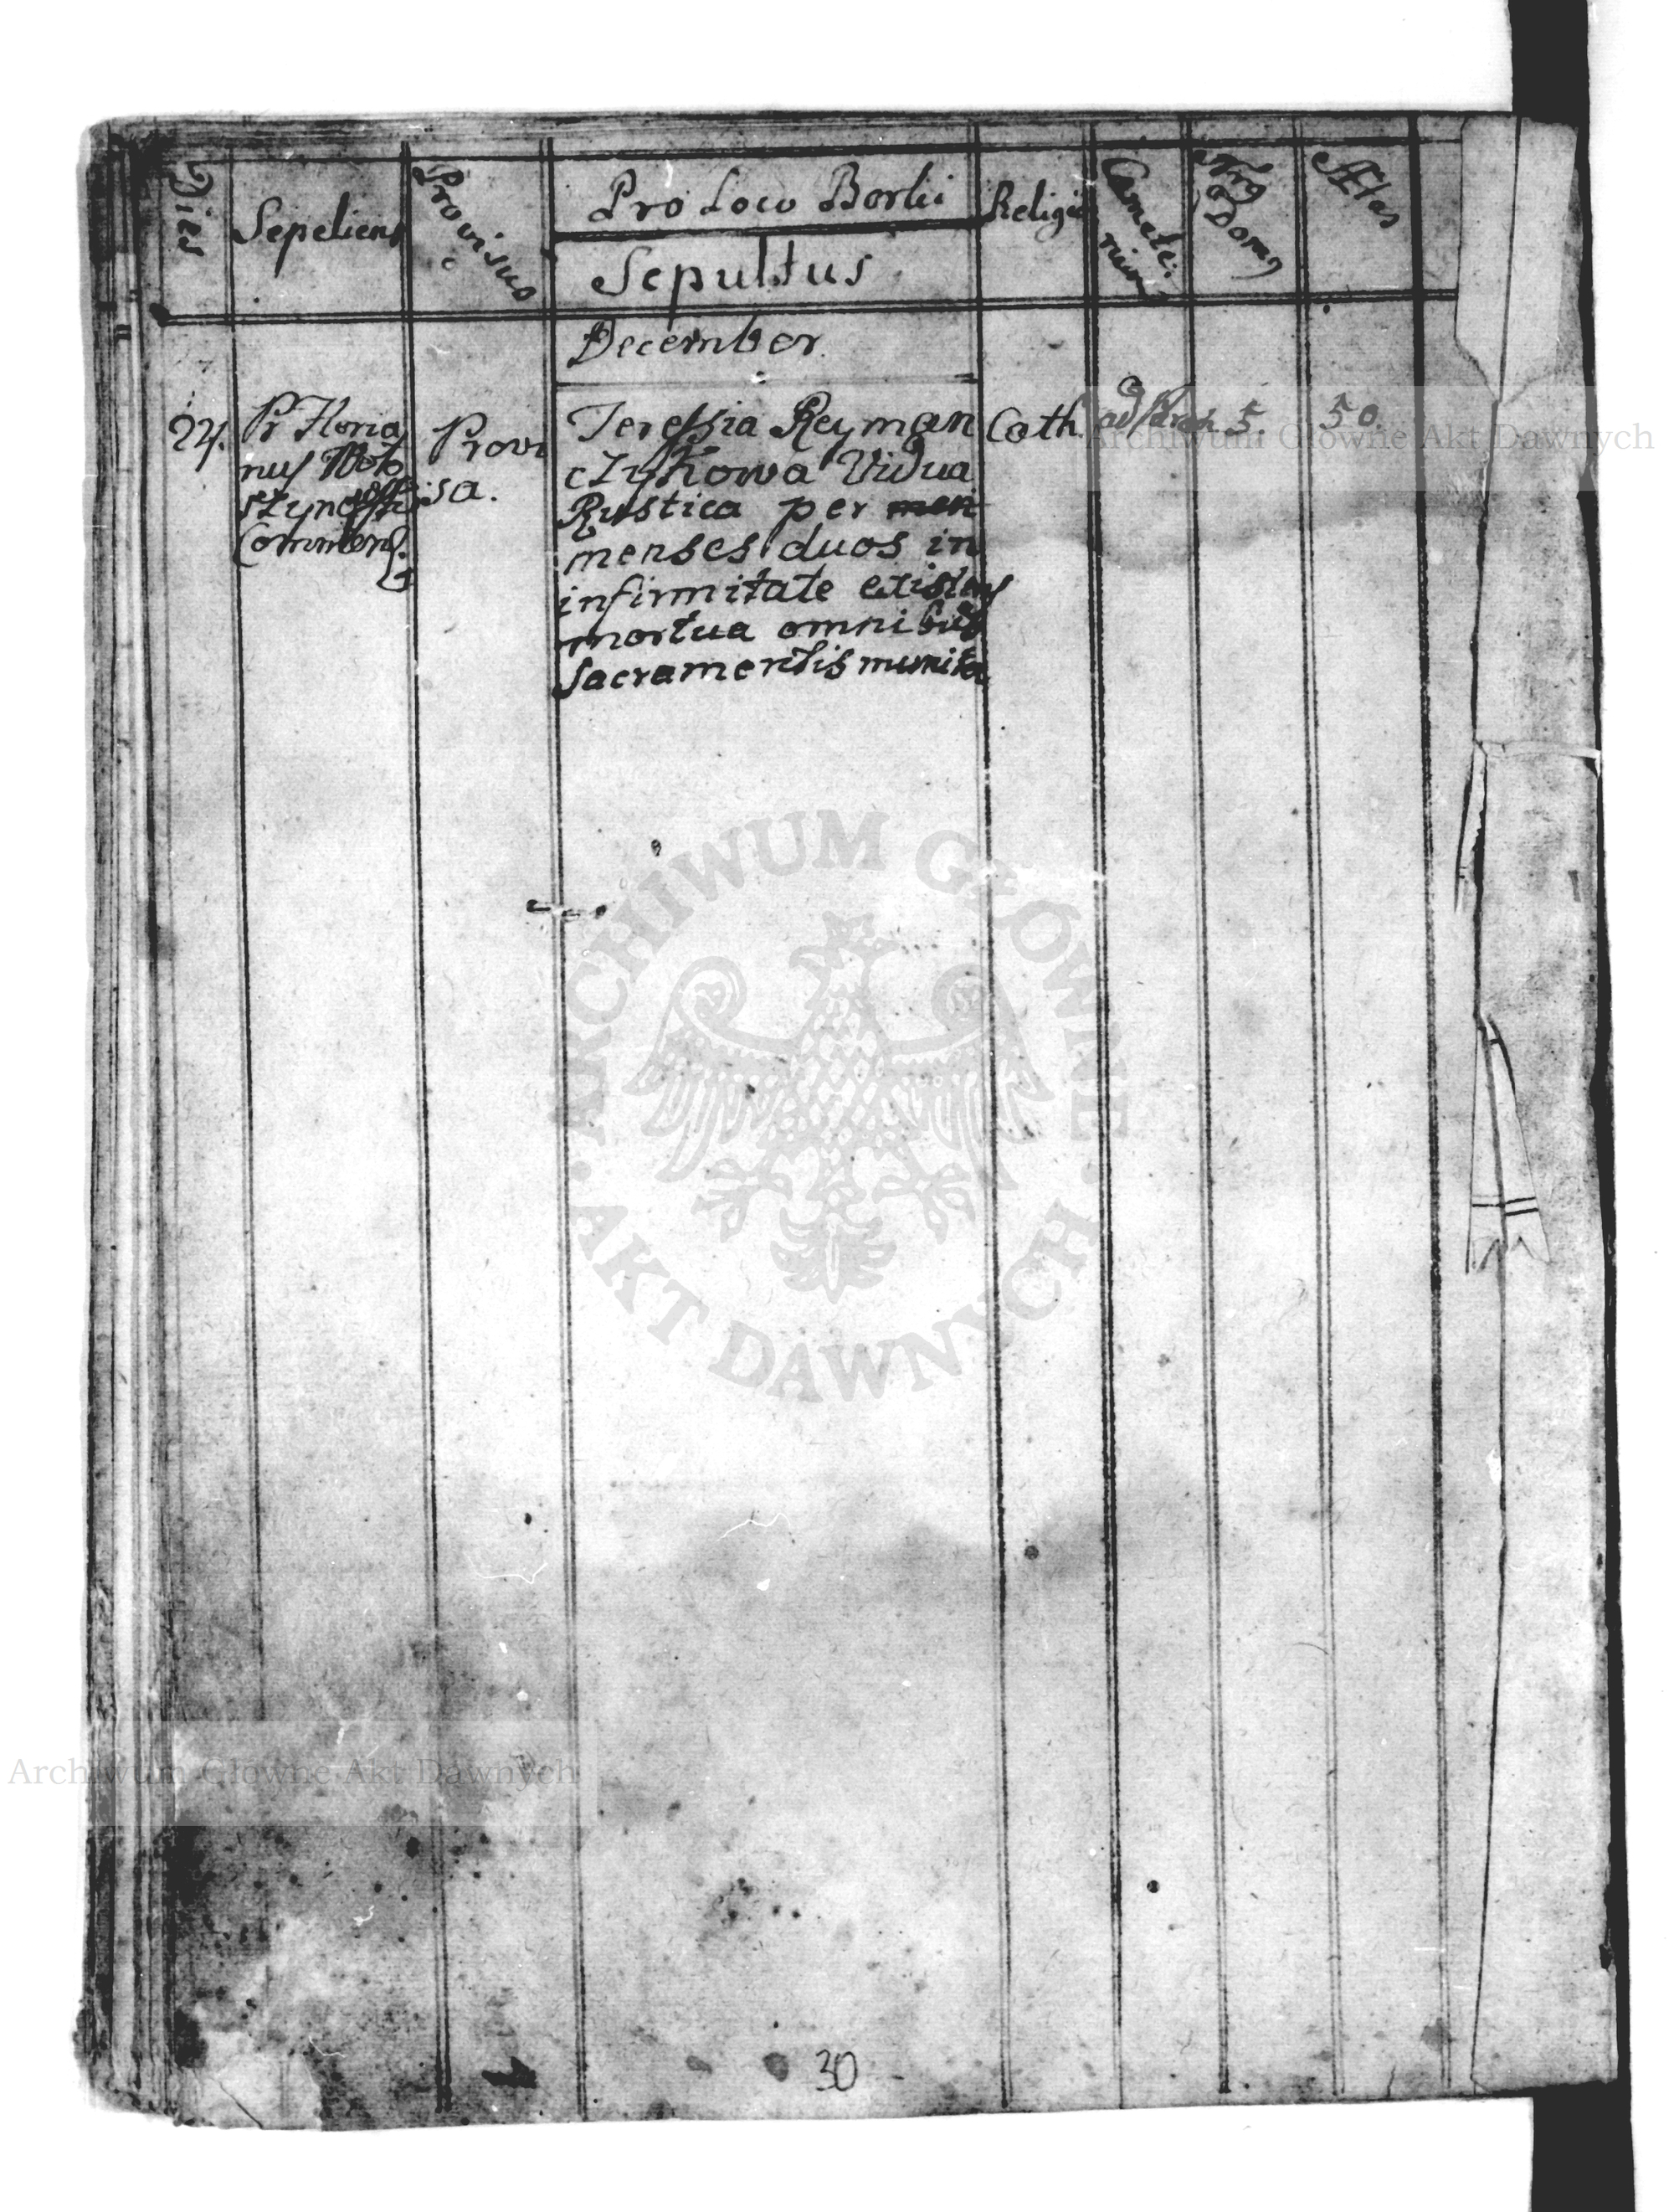 Dies
Sepeliens
Provisus
Pro Loco Borki
Sepultus
Religio
Cæmete:
rium
Nrg
Dom9
Ætas
December.
24.
Pr Floria
nus Woło
szynoffski
Commend.
Provi
sa.
Teressia Reyman
czykowa Vidua
Rustica per men
menses duos in
infirmitate existens
mortua omnibus
Sacramentis munita
Cath.
ad Paroh
5.
50.
30
ARCHIWUM GŁÓWNE
AKT DAWNYCH
Archiwum Główne Akt Dawnych
Archiwum Główne Akt Dawnych